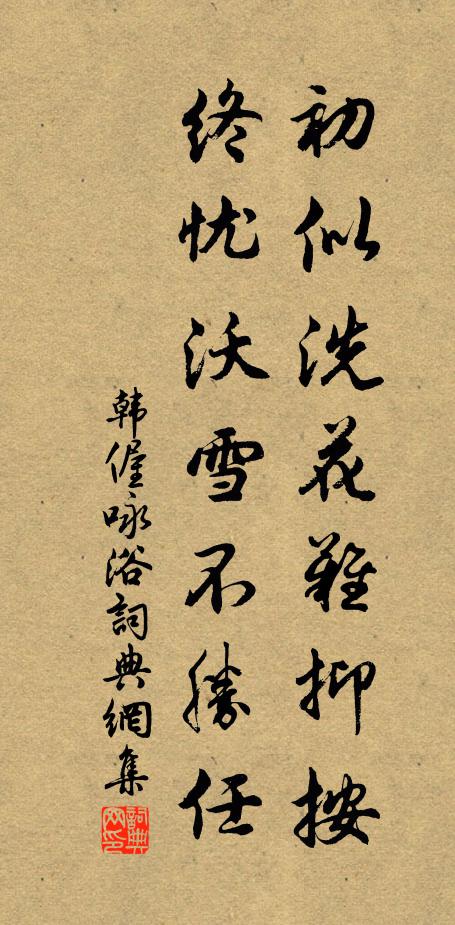 初似洗花難抑按
终忧沃雪不勝任
韩偓咏浴詞典網集
詞典網印